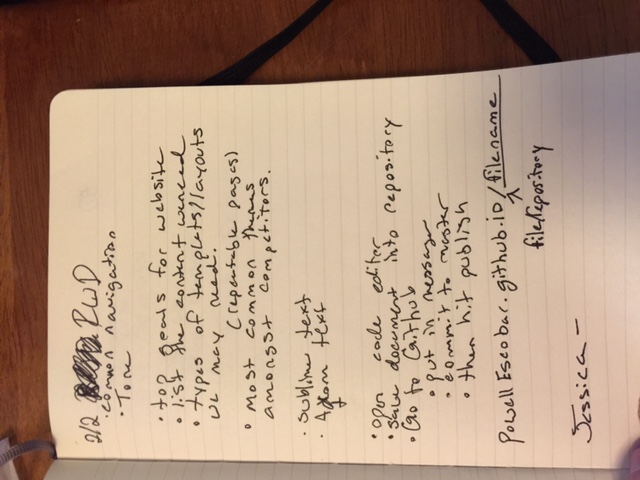 2/2 RWD
· common navigation
· Tone
· top goals for website
· list the content weneed
· types of templets/layouts
we may need.
(repeatable pages)
· Most common themes
amongsst competitors.
· sublime text
· Atom text
· open code editor
· save document into repository
· Go to Github
· put in message
· commit to master
· then hit publish
Powell Escobar.github.io/filename
file/repository
Jessica -